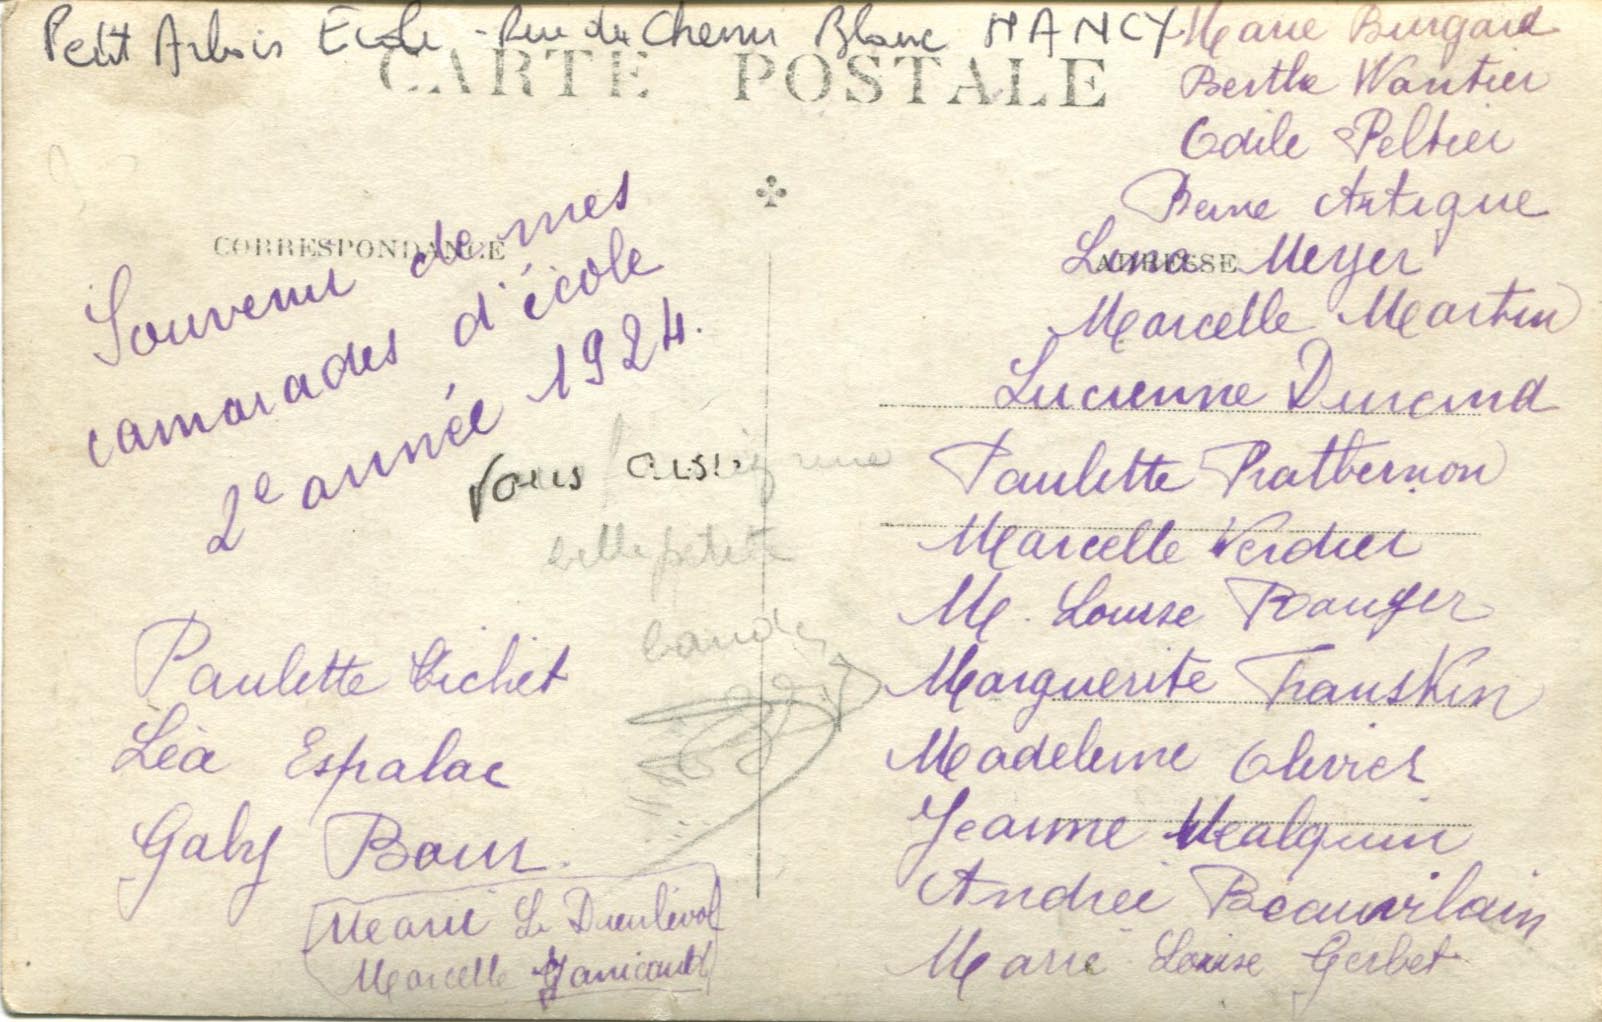 Petit Arbois École - Rue du Chemin Blanc NANCY
CARTE POSTALE
CORRESPONDANCE
ADRESSE
Souvenir de mes
camarades d'école
2e année 1924.
Vous aussi
une
petite
Paulette Cichet
Léa Espalac
Gaby Bour.
Marie Le
Marcelle Janicault
Marie Burgard
Berthe Wantier
Odile Peltier
Artigue
Meyer
Marcelle Martin
Lucienne Durand
Paulette Pratbernon
Marcelle Verdier
M. Louise Bauger
Marguerite Transkin
Madeleine Olivier
Jeanne Malquin
Andrée Beauvilain
Marie Louise Gerbet